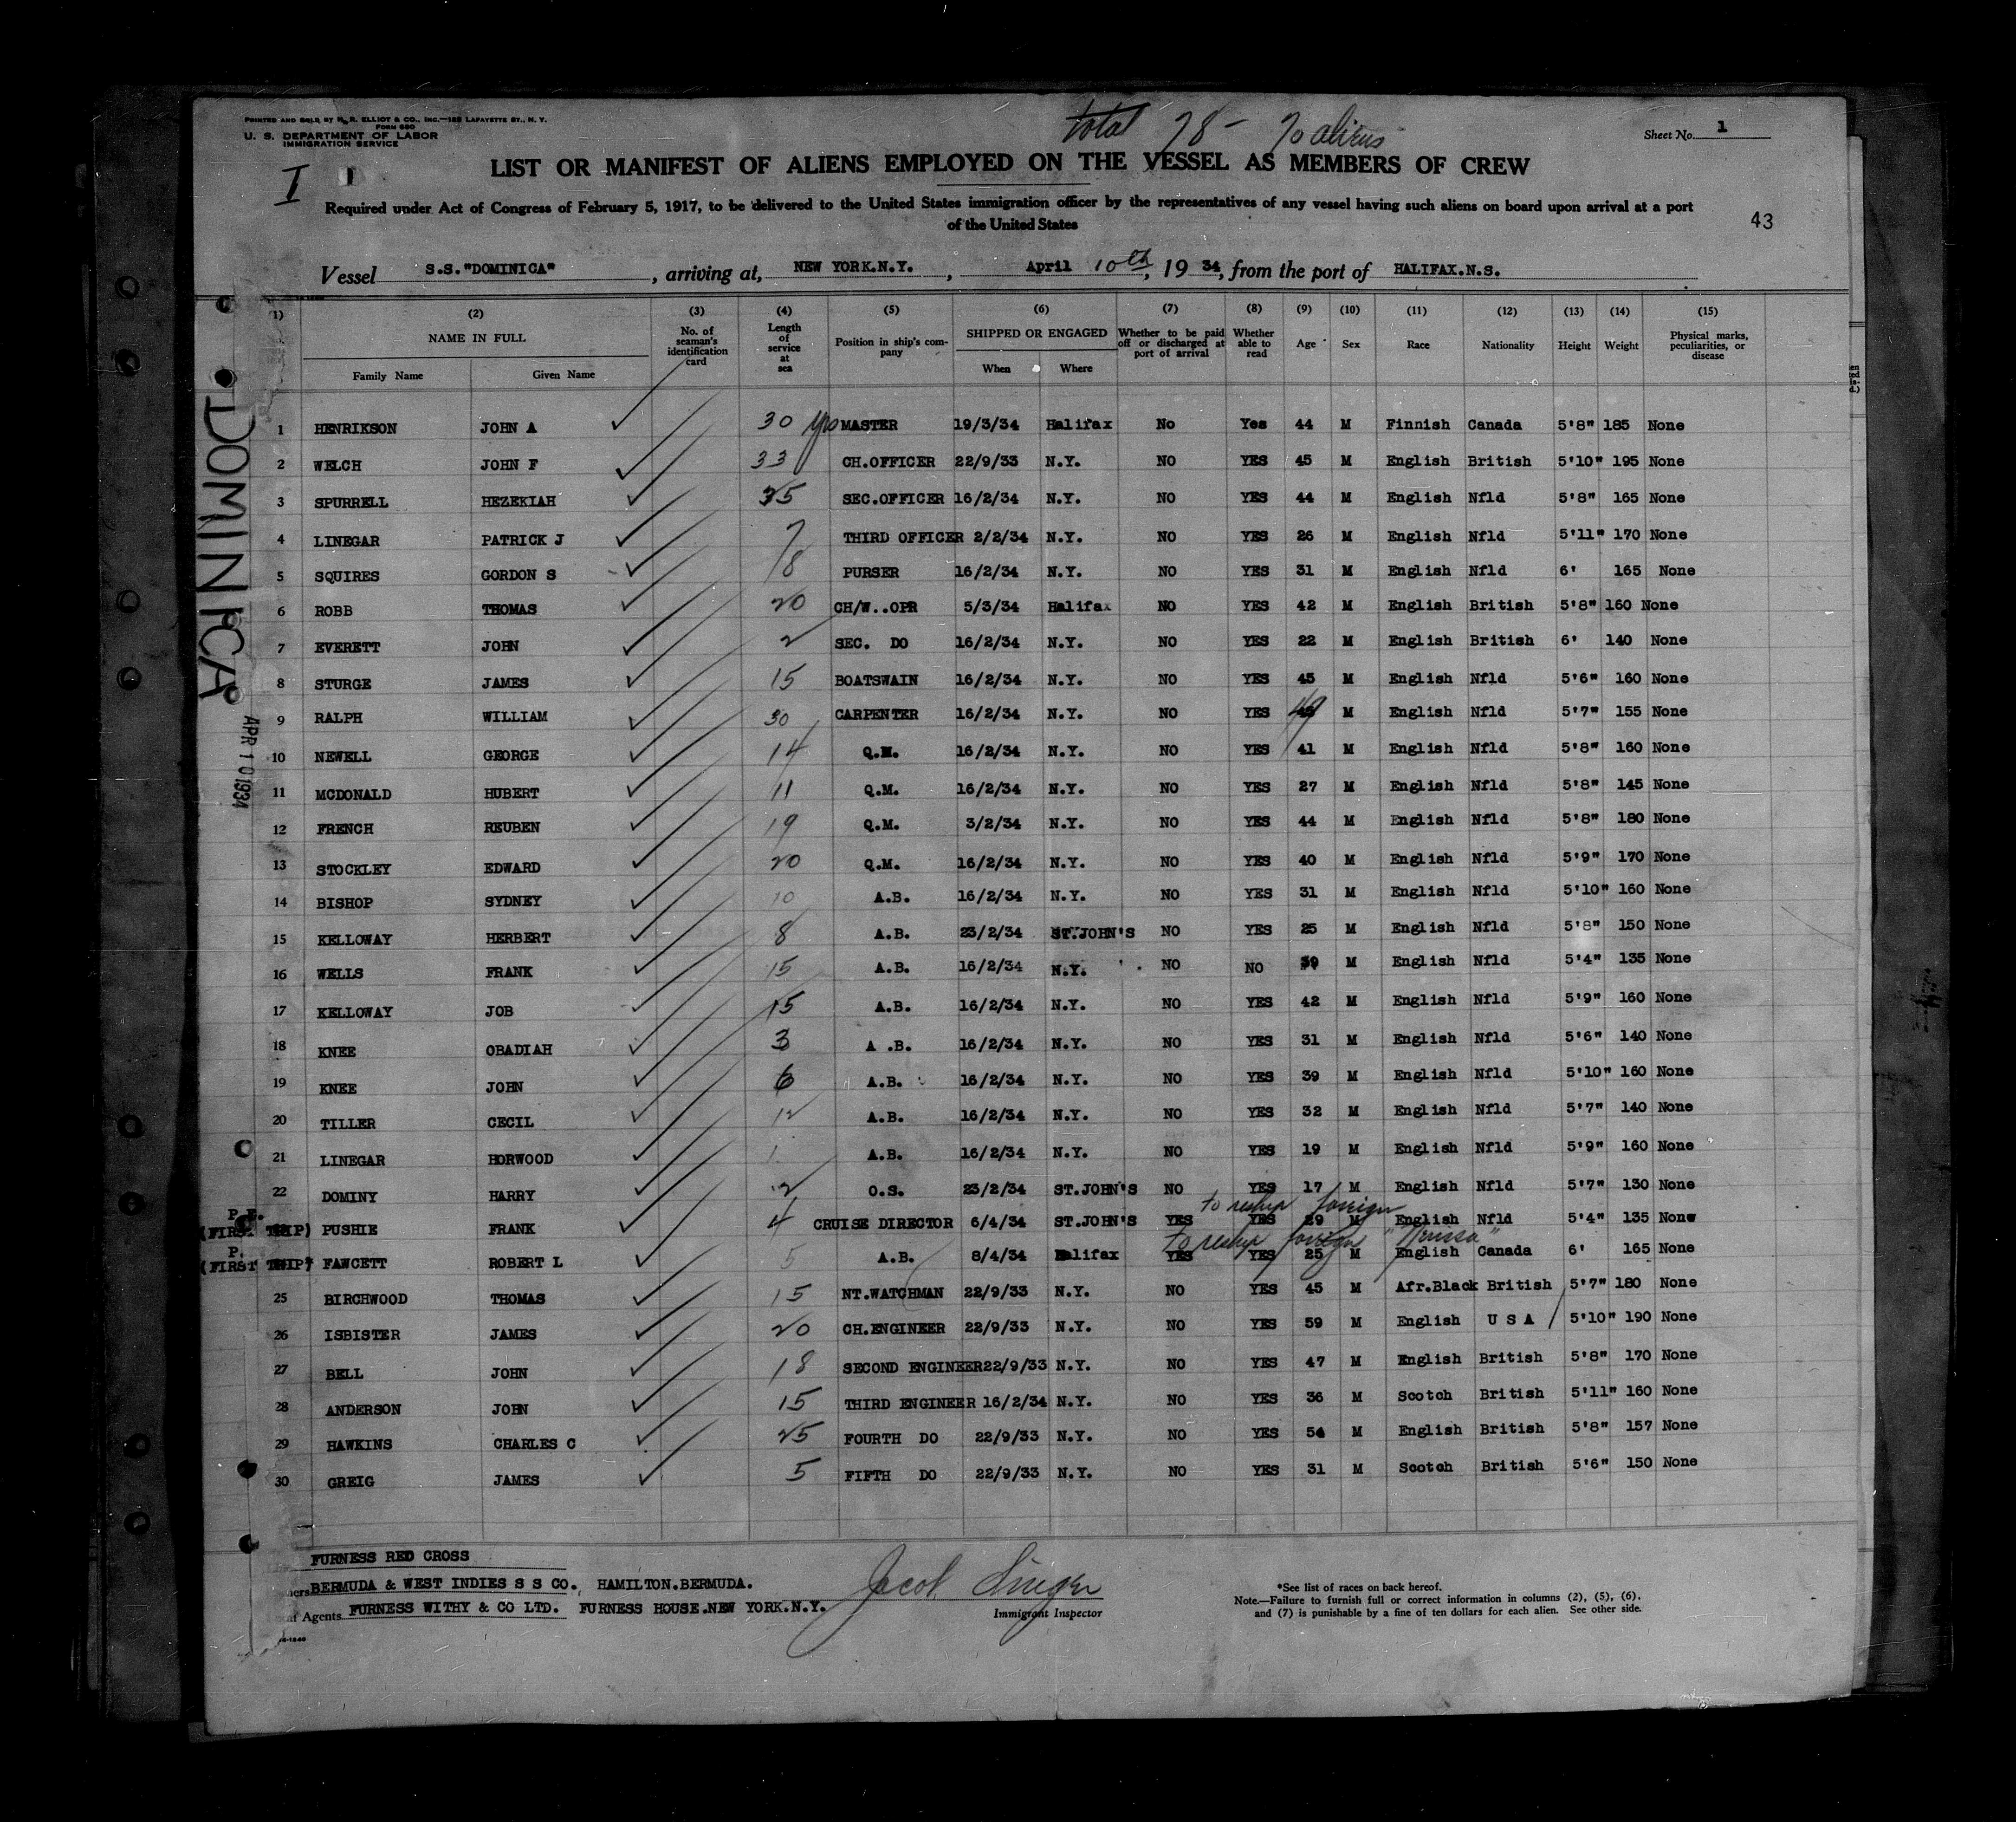 PRINTED AND SOLD BY H. R. ELLIOT & CO., INC.—122 LAFAYETTE ST., N. Y.
FORM 680
U. S. DEPARTMENT OF LABOR
IMMIGRATION SERVICE
total 78 - 70 aliens
Sheet No. 1
I 1
LIST OR MANIFEST OF ALIENS EMPLOYED ON THE VESSEL AS MEMBERS OF CREW
Required under Act of Congress of February 5, 1917, to be delivered to the United States immigration officer by the representatives of any vessel having such aliens on board upon arrival at a port
of the United States
43
Vessel S.S."DOMINICA", arriving at, NEW YORK.N.Y., April 10th, 19 34, from the port of HALIFAX.N.S.
(1) (2) (3) (4) (5) (6) (7) (8) (9) (10) (11) (12) (13) (14) (15)
NAME IN FULL
Family Name Given Name
No. of seaman's identification card
Length of service at sea
Position in ship's company
SHIPPED OR ENGAGED
When Where
Whether to be paid off or discharged at port of arrival
Whether able to read
Age Sex Race Nationality Height Weight
Physical marks, peculiarities, or disease
DOMINICA
APR 10 1934
1 HENRIKSON JOHN A 30 yrs MASTER 19/3/34 Halifax No Yes 44 M Finnish Canada 5'8" 185 None
2 WELCH JOHN F 33 CH.OFFICER 22/9/33 N.Y. NO YES 45 M English British 5'10" 195 None
3 SPURRELL HEZEKIAH 35 SEC.OFFICER 16/2/34 N.Y. NO YES 44 M English Nfld 5'8" 165 None
4 LINEGAR PATRICK J 7 THIRD OFFICER 2/2/34 N.Y. NO YES 26 M English Nfld 5'11" 170 None
5 SQUIRES GORDON S 8 PURSER 16/2/34 N.Y. NO YES 31 M English Nfld 6' 165 None
6 ROBB THOMAS 20 CH/W..OPR 5/3/34 Halifax NO YES 42 M English British 5'8" 160 None
7 EVERETT JOHN 2 SEC. DO 16/2/34 N.Y. NO YES 22 M English British 6' 140 None
8 STURGE JAMES 15 BOATSWAIN 16/2/34 N.Y. NO YES 45 M English Nfld 5'6" 160 None
9 RALPH WILLIAM 30 CARPENTER 16/2/34 N.Y. NO YES 49 M English Nfld 5'7" 155 None
10 NEWELL GEORGE 14 Q.M. 16/2/34 N.Y. NO YES 41 M English Nfld 5'8" 160 None
11 MCDONALD HUBERT 11 Q.M. 16/2/34 N.Y. NO YES 27 M English Nfld 5'8" 145 None
12 FRENCH REUBEN 19 Q.M. 3/2/34 N.Y. NO YES 44 M English Nfld 5'8" 180 None
13 STOCKLEY EDWARD 20 Q.M. 16/2/34 N.Y. NO YES 40 M English Nfld 5'9" 170 None
14 BISHOP SYDNEY 10 A.B. 16/2/34 N.Y. NO YES 31 M English Nfld 5'10" 160 None
15 KELLOWAY HERBERT 8 A.B. 23/2/34 ST.JOHN'S NO YES 25 M English Nfld 5'8" 150 None
16 WELLS FRANK 15 A.B. 16/2/34 N.Y. NO NO 39 M English Nfld 5'4" 135 None
17 KELLOWAY JOB 15 A.B. 16/2/34 N.Y. NO YES 42 M English Nfld 5'9" 160 None
18 KNEE OBADIAH 3 A .B. 16/2/34 N.Y. NO YES 31 M English Nfld 5'6" 140 None
19 KNEE JOHN 6 A.B. 16/2/34 N.Y. NO YES 39 M English Nfld 5'10" 160 None
20 TILLER CECIL 12 A.B. 16/2/34 N.Y. NO YES 32 M English Nfld 5'7" 140 None
21 LINEGAR HORWOOD 1 A.B. 16/2/34 N.Y. NO YES 19 M English Nfld 5'9" 160 None
22 DOMINY HARRY 2 O.S. 23/2/34 ST.JOHN'S NO YES 17 M English Nfld 5'7" 130 None
to reship foreign
(FIRST TRIP) PUSHIE FRANK 4 CRUISE DIRECTOR 6/4/34 ST.JOHN'S YES YES 29 M English Nfld 5'4" 135 None
to reship foreign "Nerissa"
P. (FIRST TRIP" FAWCETT ROBERT L 5 A.B. 8/4/34 Halifax YES YES 25 M English Canada 6' 165 None
25 BIRCHWOOD THOMAS 15 NT.WATCHMAN 22/9/33 N.Y. NO YES 45 M Afr.Black British 5'7" 180 None
26 ISBISTER JAMES 20 CH.ENGINEER 22/9/33 N.Y. NO YES 59 M English U S A 5'10" 190 None
27 BELL JOHN 18 SECOND ENGINEER 22/9/33 N.Y. NO YES 47 M English British 5'8" 170 None
28 ANDERSON JOHN 15 THIRD ENGINEER 16/2/34 N.Y. NO YES 36 M Scotch British 5'11" 160 None
29 HAWKINS CHARLES C 25 FOURTH DO 22/9/33 N.Y. NO YES 54 M English British 5'8" 157 None
30 GREIG JAMES 5 FIFTH DO 22/9/33 N.Y. NO YES 31 M Scotch British 5'6" 150 None
FURNESS RED CROSS
BERMUDA & WEST INDIES S S CO. HAMILTON.BERMUDA.
Agents FURNESS WITHY & CO LTD. FURNESS HOUSE.NEW YORK.N.Y.
Jacob Singer
Immigrant Inspector
*See list of races on back hereof.
Note.—Failure to furnish full or correct information in columns (2), (5), (6),
and (7) is punishable by a fine of ten dollars for each alien. See other side.